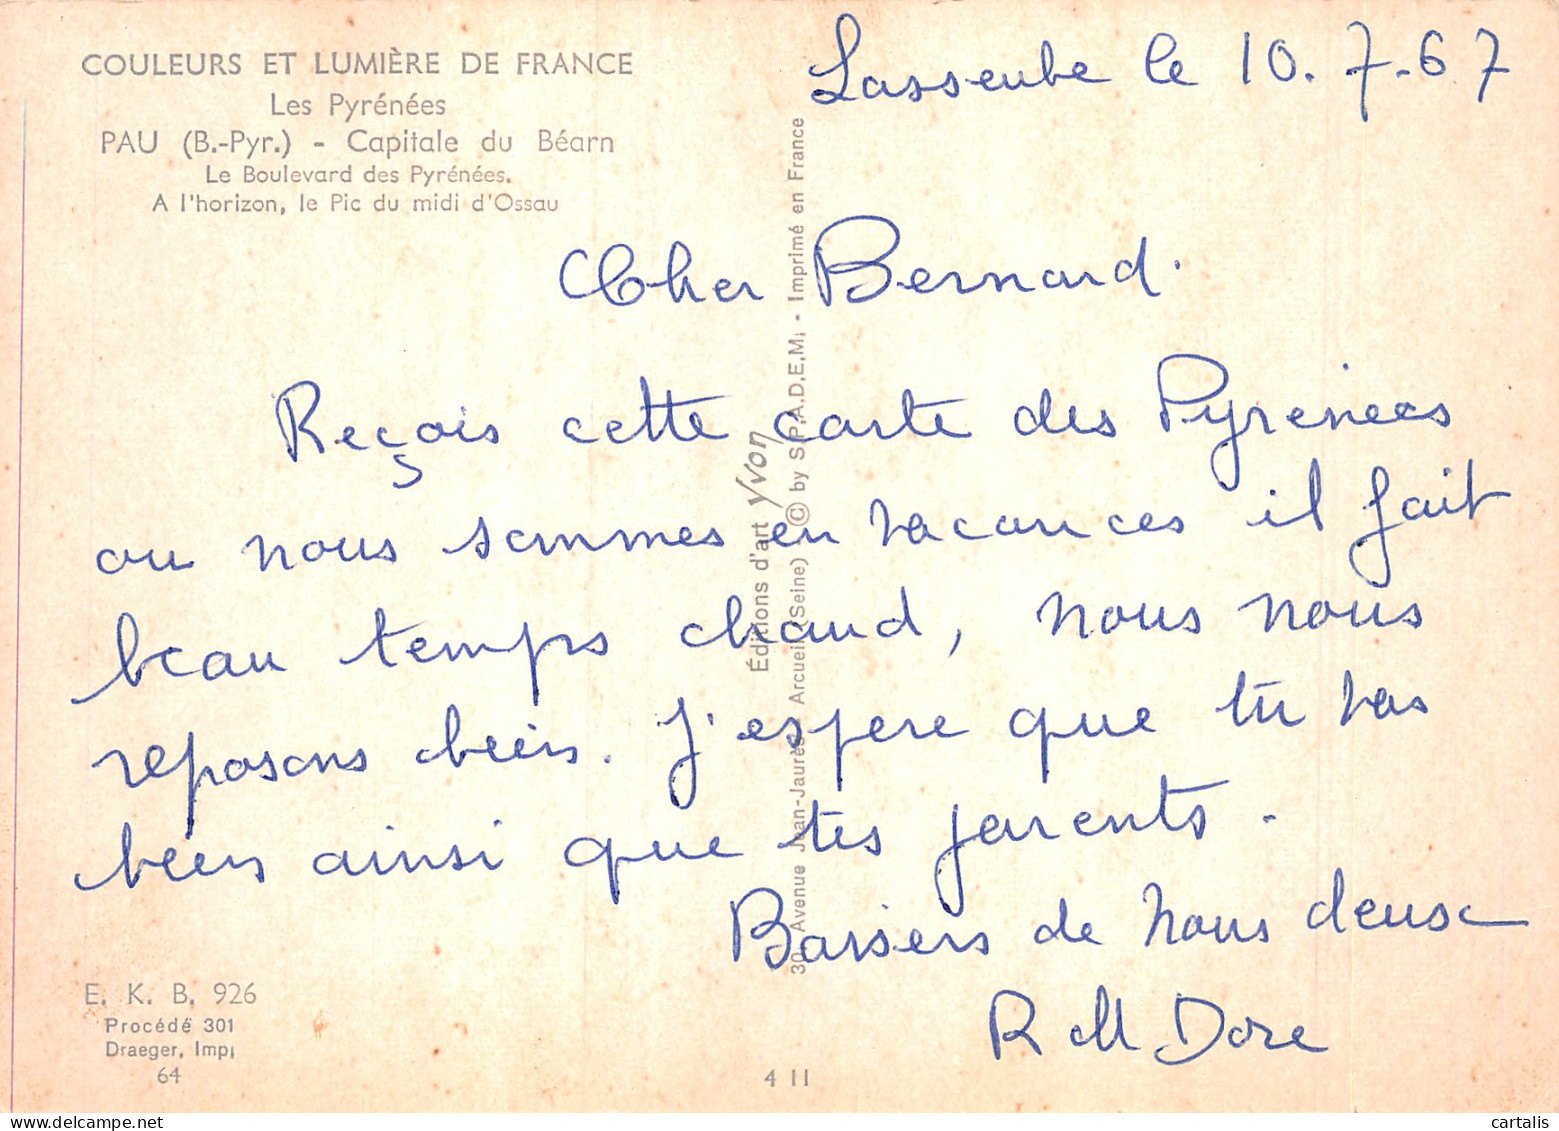 COULEURS ET LUMIÈRE DE FRANCE
Les Pyrénées
PAU (B.-Pyr.) - Capitale du Béarn
Le Boulevard des Pyrénées.
A l'horizon, le Pic du midi d'Ossau
Lasseube le 10.7.67
Cher Bernard.
Reçois cette carte des Pyrenees
ou nous sommes en vacances il fait
beau temps chaud, nous nous
reposons bien. J'espere que tu vas
bien ainsi que tes parents.
Baisers de nous deux
R M Dore
Éditions d'art Yvon
30, Avenue Jean-Jaurès - Arcueil (Seine) © by S.P.A.D.E.M. - Imprimé en France
E. K. B. 926
Procédé 301
Draeger, Imp.
64
4 11
www.delcampe.net
cartalis